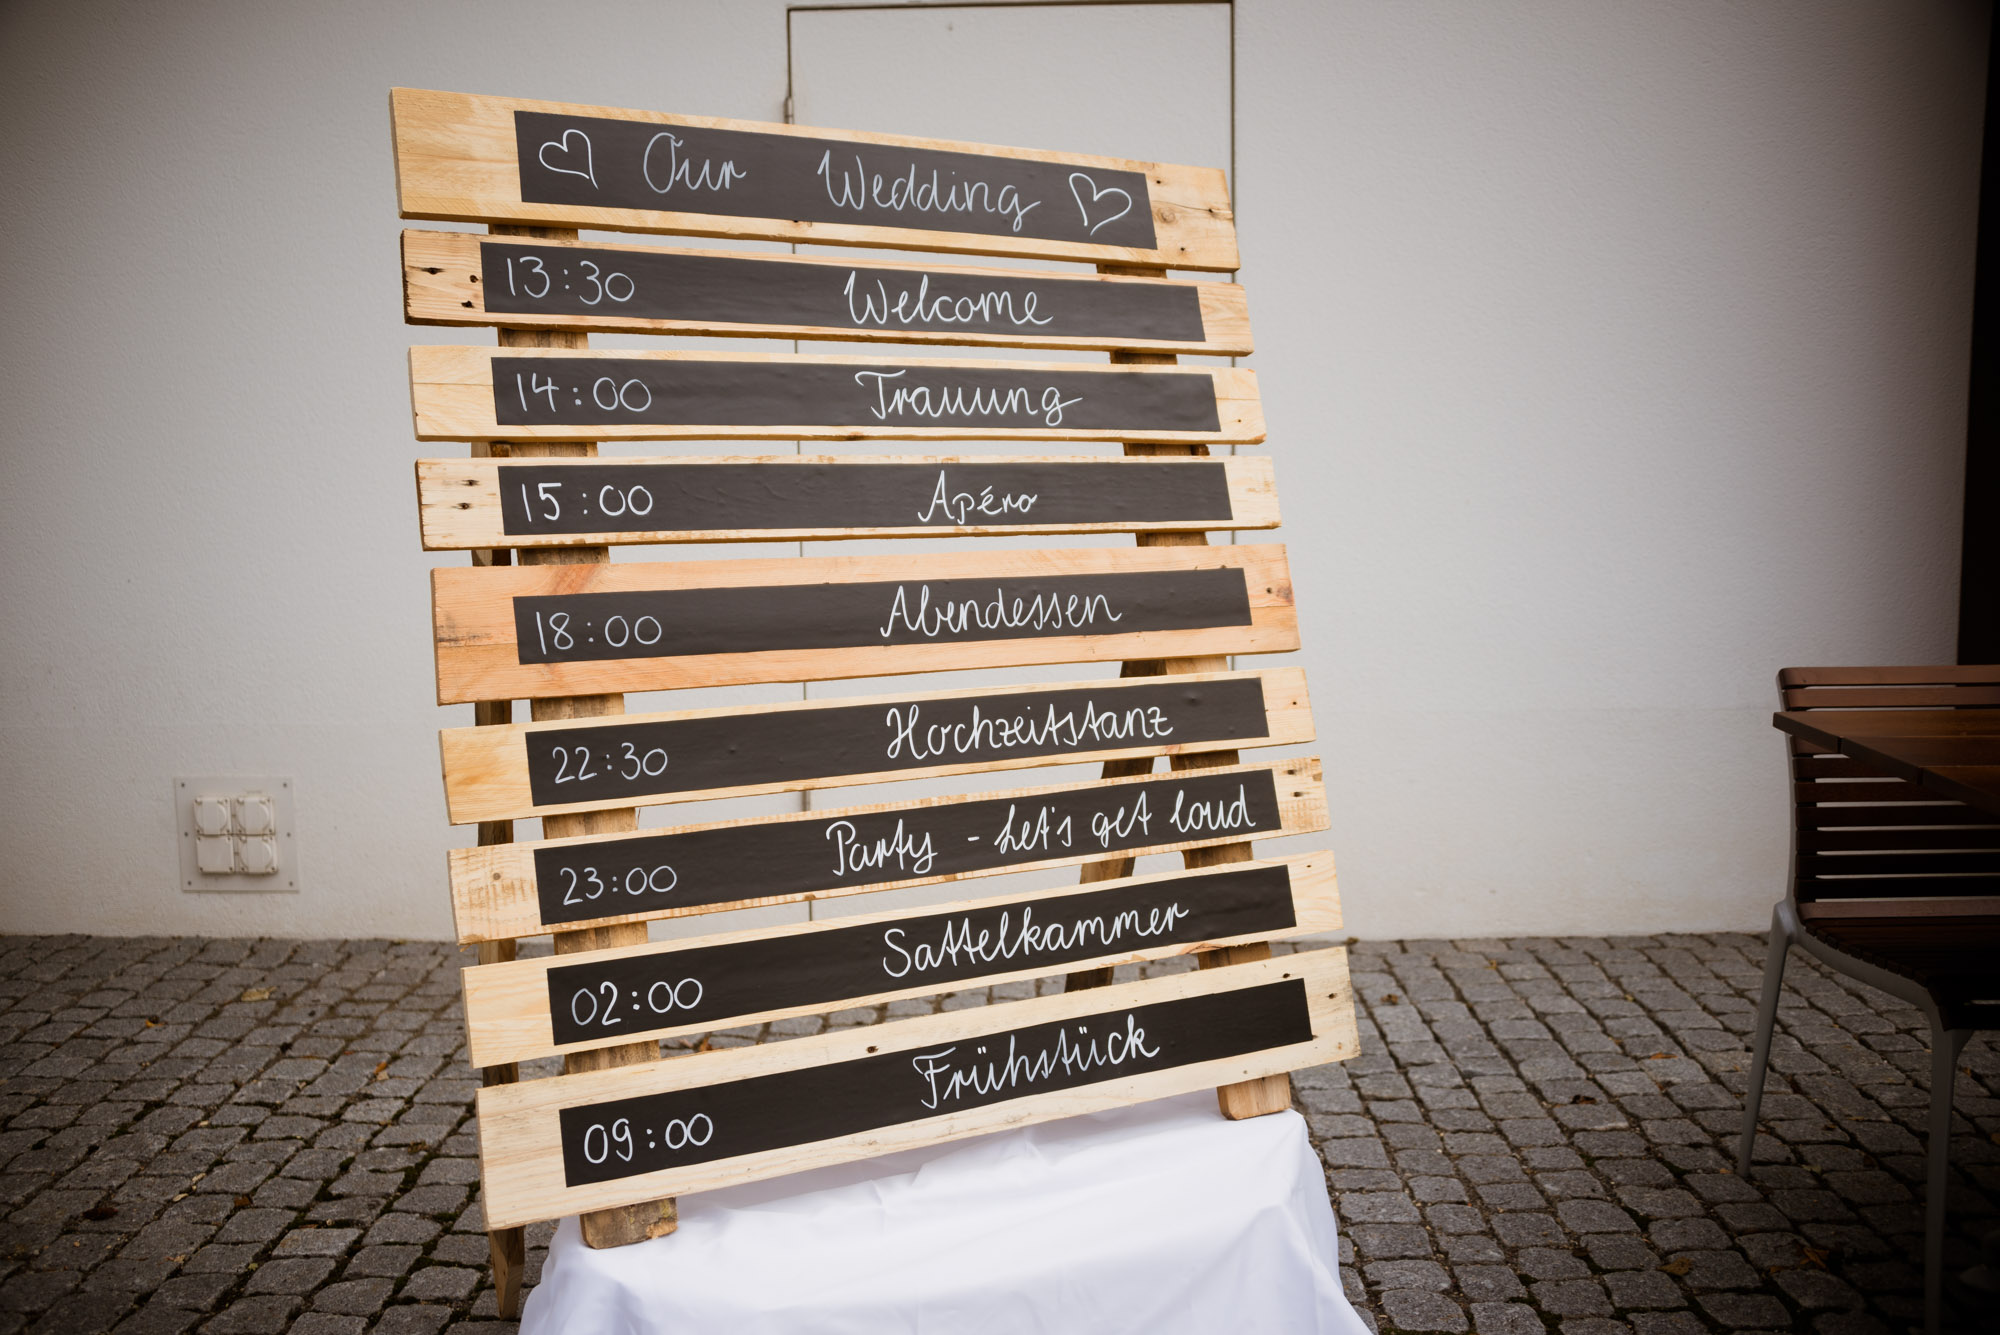 Our Wedding
13:30 Welcome
14:00 Trauung
15:00 Apéro
18:00 Abendessen
22:30 Hochzeitstanz
23:00 Party - Let's get loud
02:00 Sattelkammer
09:00 Frühstück